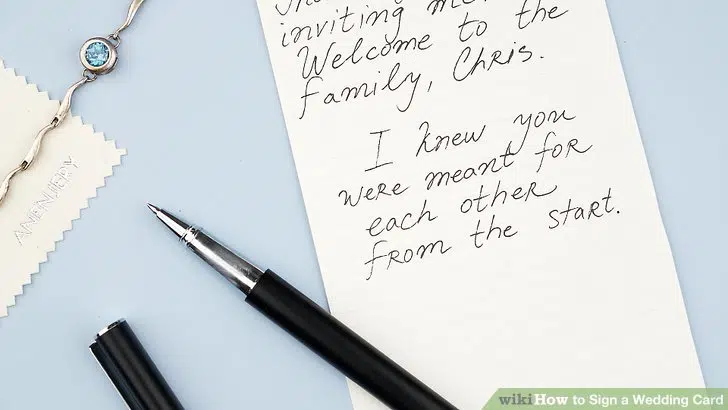 inviting me.
Welcome to the
family, Chris.
I knew you
were meant for
each other
from the start.
wikiHow to Sign a Wedding Card